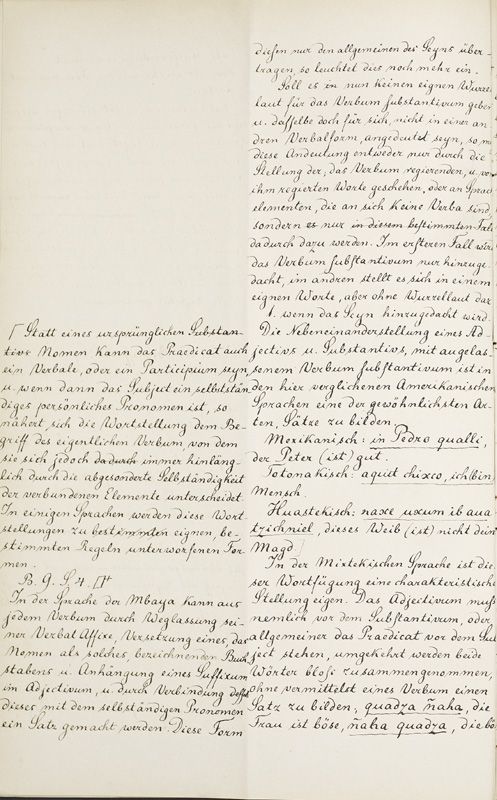 diesen nur den allgemeinen des Seyns über-
tragen, so leuchtet dies noch mehr ein.
Soll es in nun keinen eignen Wurzel
laut für das Verbum substantivum geben
u. dasselbe doch für sich, nicht in einer an-
dren Verbalform, angedeutet seyn, so
diese Andeutung entweder nur durch die
Stellung der, das Verbum regierenden, u. von
ihm regierten Worte geschehen, oder an Sprach
elementen, die an sich keine Verba sind,
sondern es nur in diesem bestimmten Falle
dadurch dazu werden. Im ersteren Fall wird
das Verbum substantivum nur hinzuge-
dacht, im andren stellt es sich in einem
eignen Worte, aber ohne Wurzellaut dar.
1. wenn das Seyn hinzugedacht wird.
Die Nebeneinanderstellung eines Ad-
jectivs u. Substantivs, mit ausgelas-
senem Verbum substantivum ist in
den hier verglichenen Amerikanischen
Sprachen eine der gewöhnlichsten Ar-
ten, Sätze zu bilden.
Mexikanisch: in Pedro qualli,
der Peter (ist) gut.
Totonakisch: aquit chixco, ich (bin)
Mensch.
Huastekisch: naxe uxum ib aua-
tzichniel, dieses Weib (ist) nicht dein
Magd
In der Mixtekischen Sprache ist die-
ser Wortfügung eine charakteristische
Stellung eigen. Das Adjectivum muß
nemlich vor dem Substantivum, oder
allgemeiner das Praedicat vor dem Sub
ject stehen, umgekehrt werden beide
Wörter bloß zusammengenommen,
ohne vermittelst eines Verbum einen
Satz zu bilden; quadza ñaha, die
Frau ist böse, ñaha quadza, die bö-
[ Statt eines ursprünglichen Substan-
tivs Nomen kann das Praedicat auch
ein Verbale, oder ein Participium seyn,
u. wenn dann das Subject ein selbstän
diges persönliches Pronomen ist, so
nähert sich die Wortstellung dem Be-
griff des eigentlichen Verbum, von dem
sie sich jedoch dadurch immer hinläng-
lich durch die abgesonderte Selbständigkeit
der verbundenen Elemente unterscheidet.
In einigen Sprachen werden diese Wort
stellungen zu bestimmten eignen be-
stimmten Regeln unterworfenen For-
men.
B. 9. S. 4.
In der Sprache der Mbaya kann aus
jedem Verbum durch Weglassung sei-
ner Verbal Affixe, Versetzung eines, das
Nomen als solches, bezeichnenden Buch
stabens u. Anhängung eines Suffixum
im Adjectivum, u. durch Verbindung
dieses mit dem selbständigen Pronomen
ein Satz gemacht werden. Diese Form